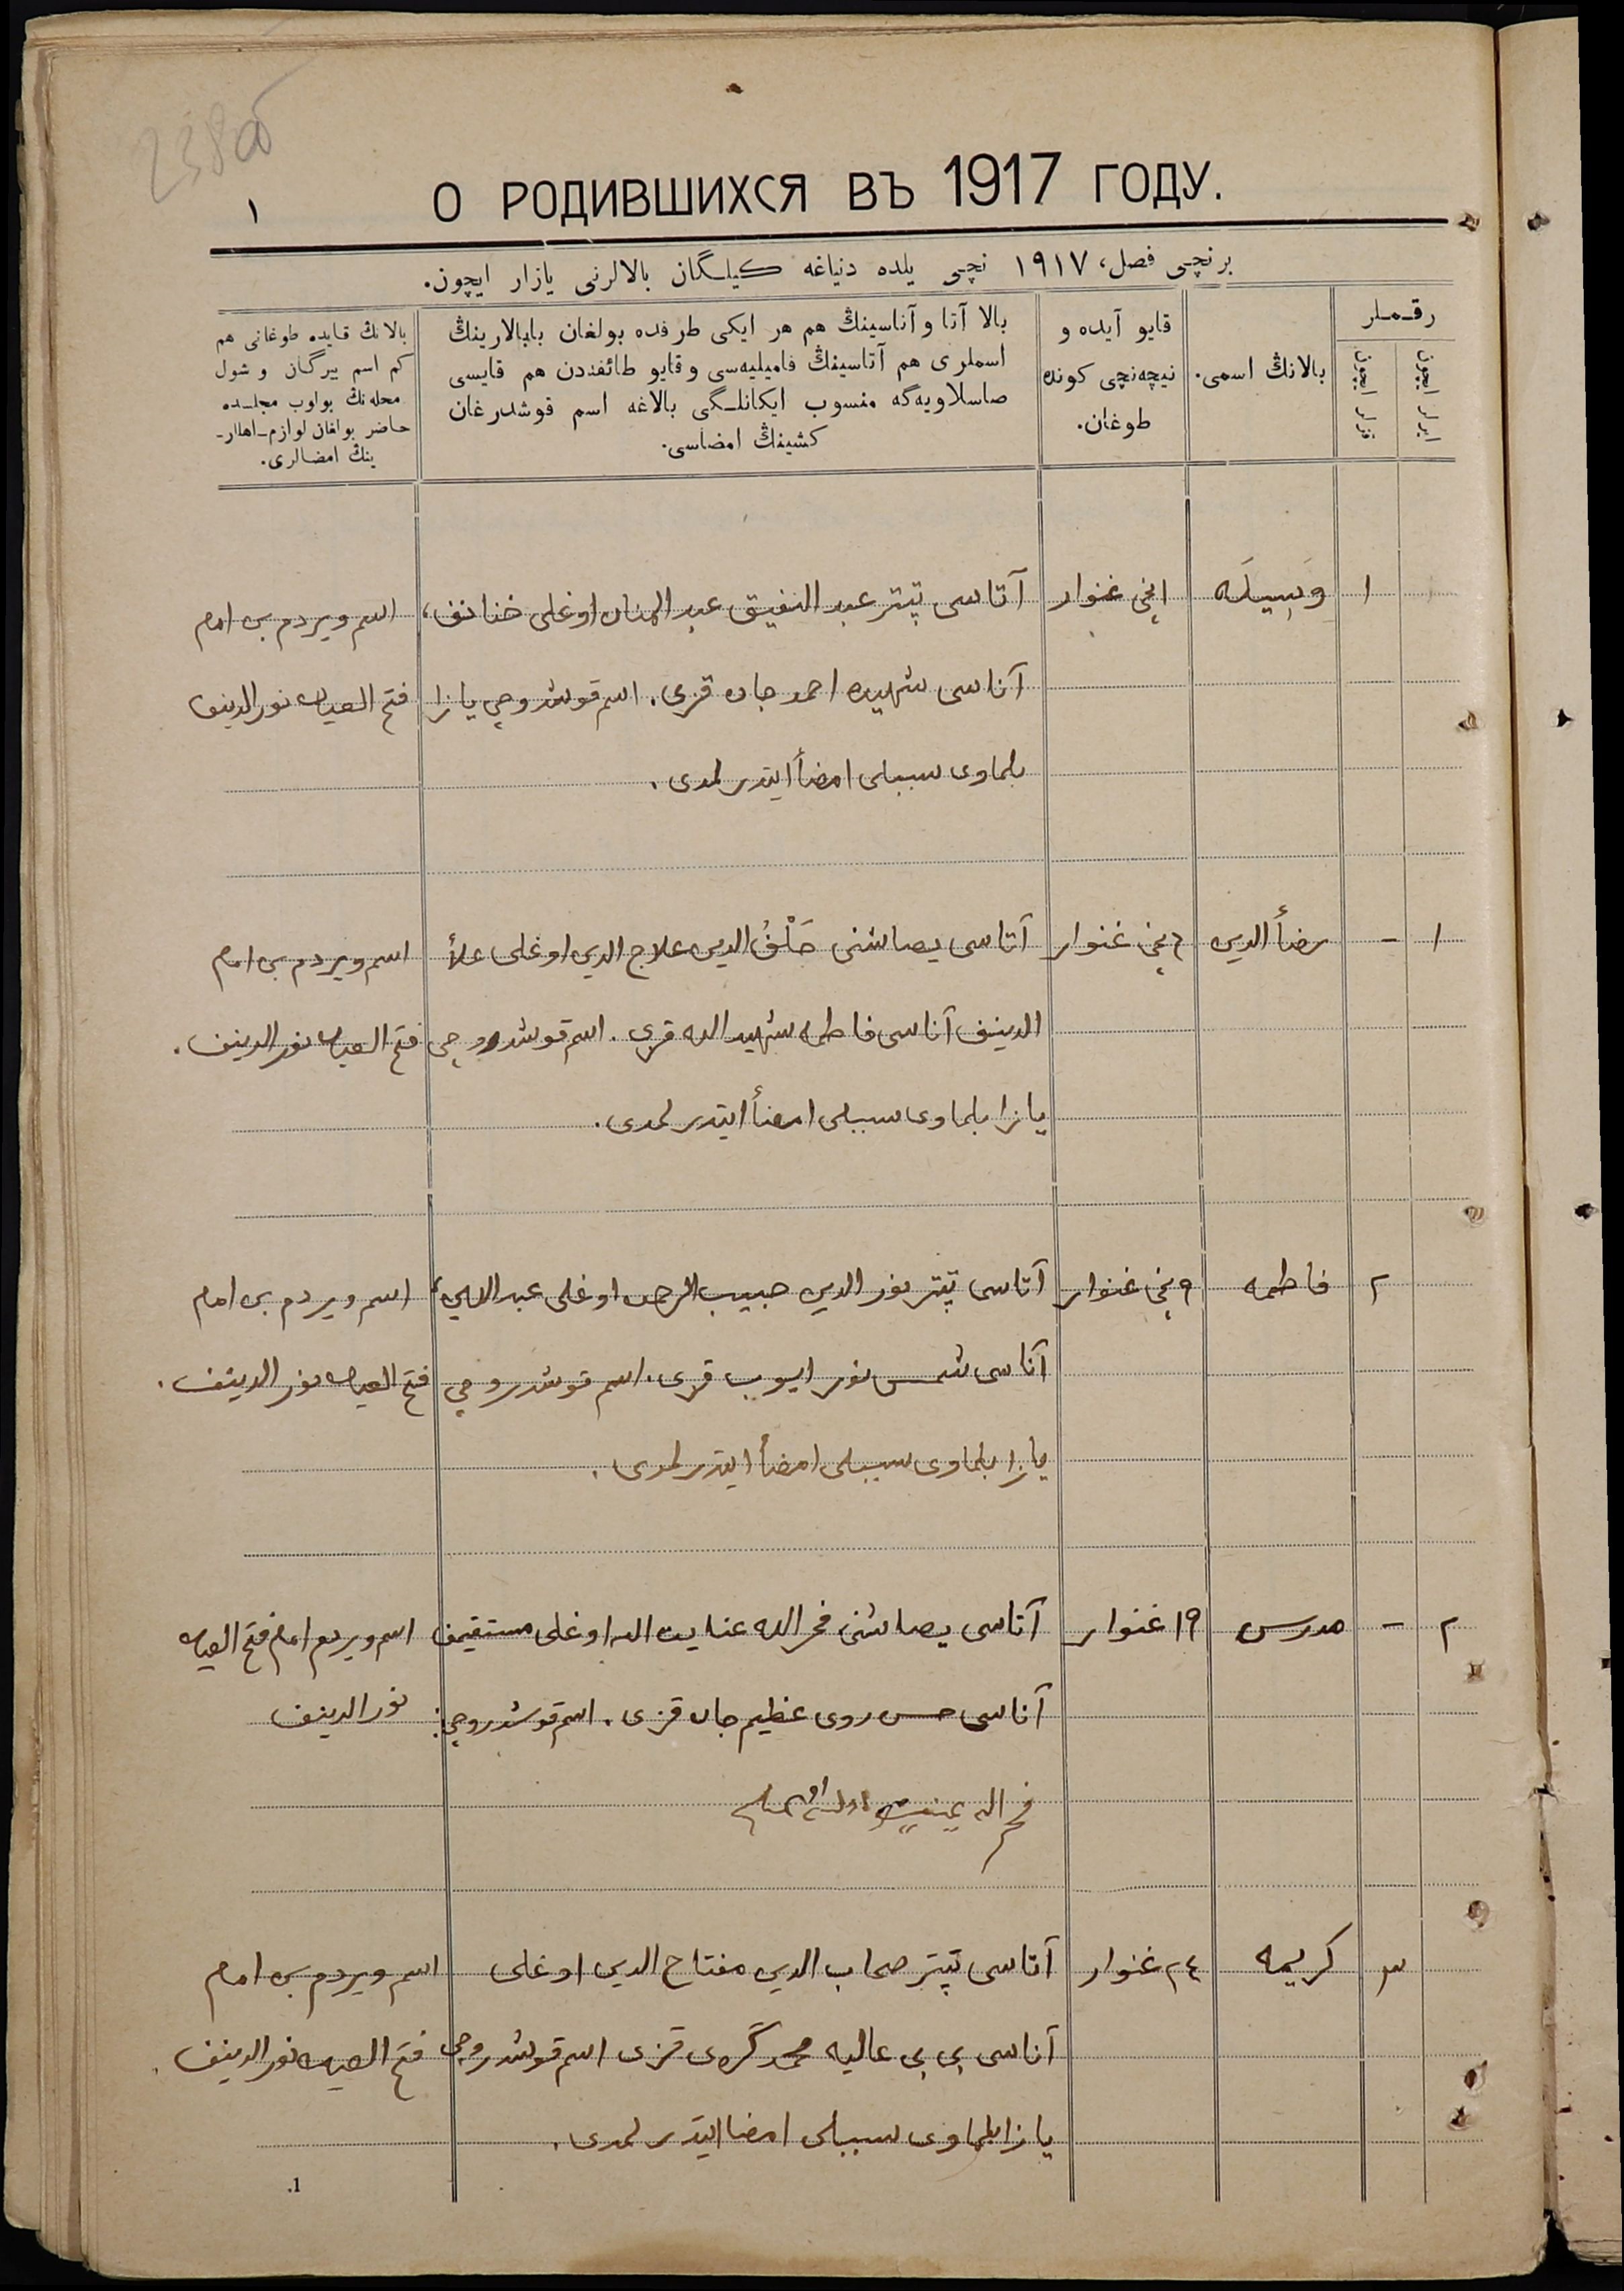 238об
١
О РОДИВШИХСЯ ВЪ 1917 ГОДУ.
برنچی فصل، ١٩١٧ نچی یلده دنیاغه کیلگان بالالرنی یازار ایچون.
رقملر
ایرلر ایچون
قزلر ایچون
بالانڭ اسمی.
قایو آیده و
نیچه‌نچی کونده
طوغان.
بالا آتا و آناسینڭ هم هر ایکی طرفده بولغان بابالارینڭ
اسملری هم آتاسینڭ فامیلیه‌سی و قایو طائفه‌دن هم قایسی
صاسلاویه‌گه منسوب ایکانلگی بالاغه اسم قوشدرغان
کشینڭ امضاسی.
بالانڭ قایده طوغانی هم
کم اسم بیرگان و شول
محله‌نڭ بولوب مجلسده
حاضر بولغان لوازم اهللر-
ینڭ امضالری.
١
وَسِیلَه
١نچی غنوار
آتاسی تپتر عبد عبد المنان اوغلی
آناسی شهیده احمد جان قزی. اسم قوشدروچی یازا
بلماوی سببلی امضأ ایتدرلمدی.
اسم ویردم بن امام
فتح نور الدینف
١
-
رضأ الدین
٢نچی غنوار
آتاسی یصاشنی الدین علاج الدین اوغلی علأ
الدینف آناسی فاطمه شهید الله قزی. اسم قوشدروچی
یازا بلماوی سببلی امضأ ایتدرلمدی.
اسم ویردم بن امام
فتح نور الدینف.
٢
فاطمه
٩نچی غنوار
آتاسی تپتر نور الدین حبیب الرحمن اوغلی
آناسی شمس نور ایوب قزی. اسم قوشدروچی
یازا بلماوی سببلی امضأ ایتدرلمدی.
اسم ویردم بن امام
فتح نور الدینف.
٢
-
مدرس
١٩ غنوار
آتاسی یصاشنی فخر الله عنایت الله اوغلی مستقیمف
آناسی حسن روی عظیم جان قزی. اسم قوشدروچی:
فخر الله
اسم ویردم امام فتح
نور الدینف
٣
کریمه
٢٤ غنوار
آتاسی تپتر صحاب الدین مفتاح الدین اوغلی
آناسی بی بی عالیه محمد گری قزی اسم قوشدروچی
یازا بلماوی سببلی امضا ایتدرلمدی.
اسم ویردم بن امام
فتح نور الدینف
1.